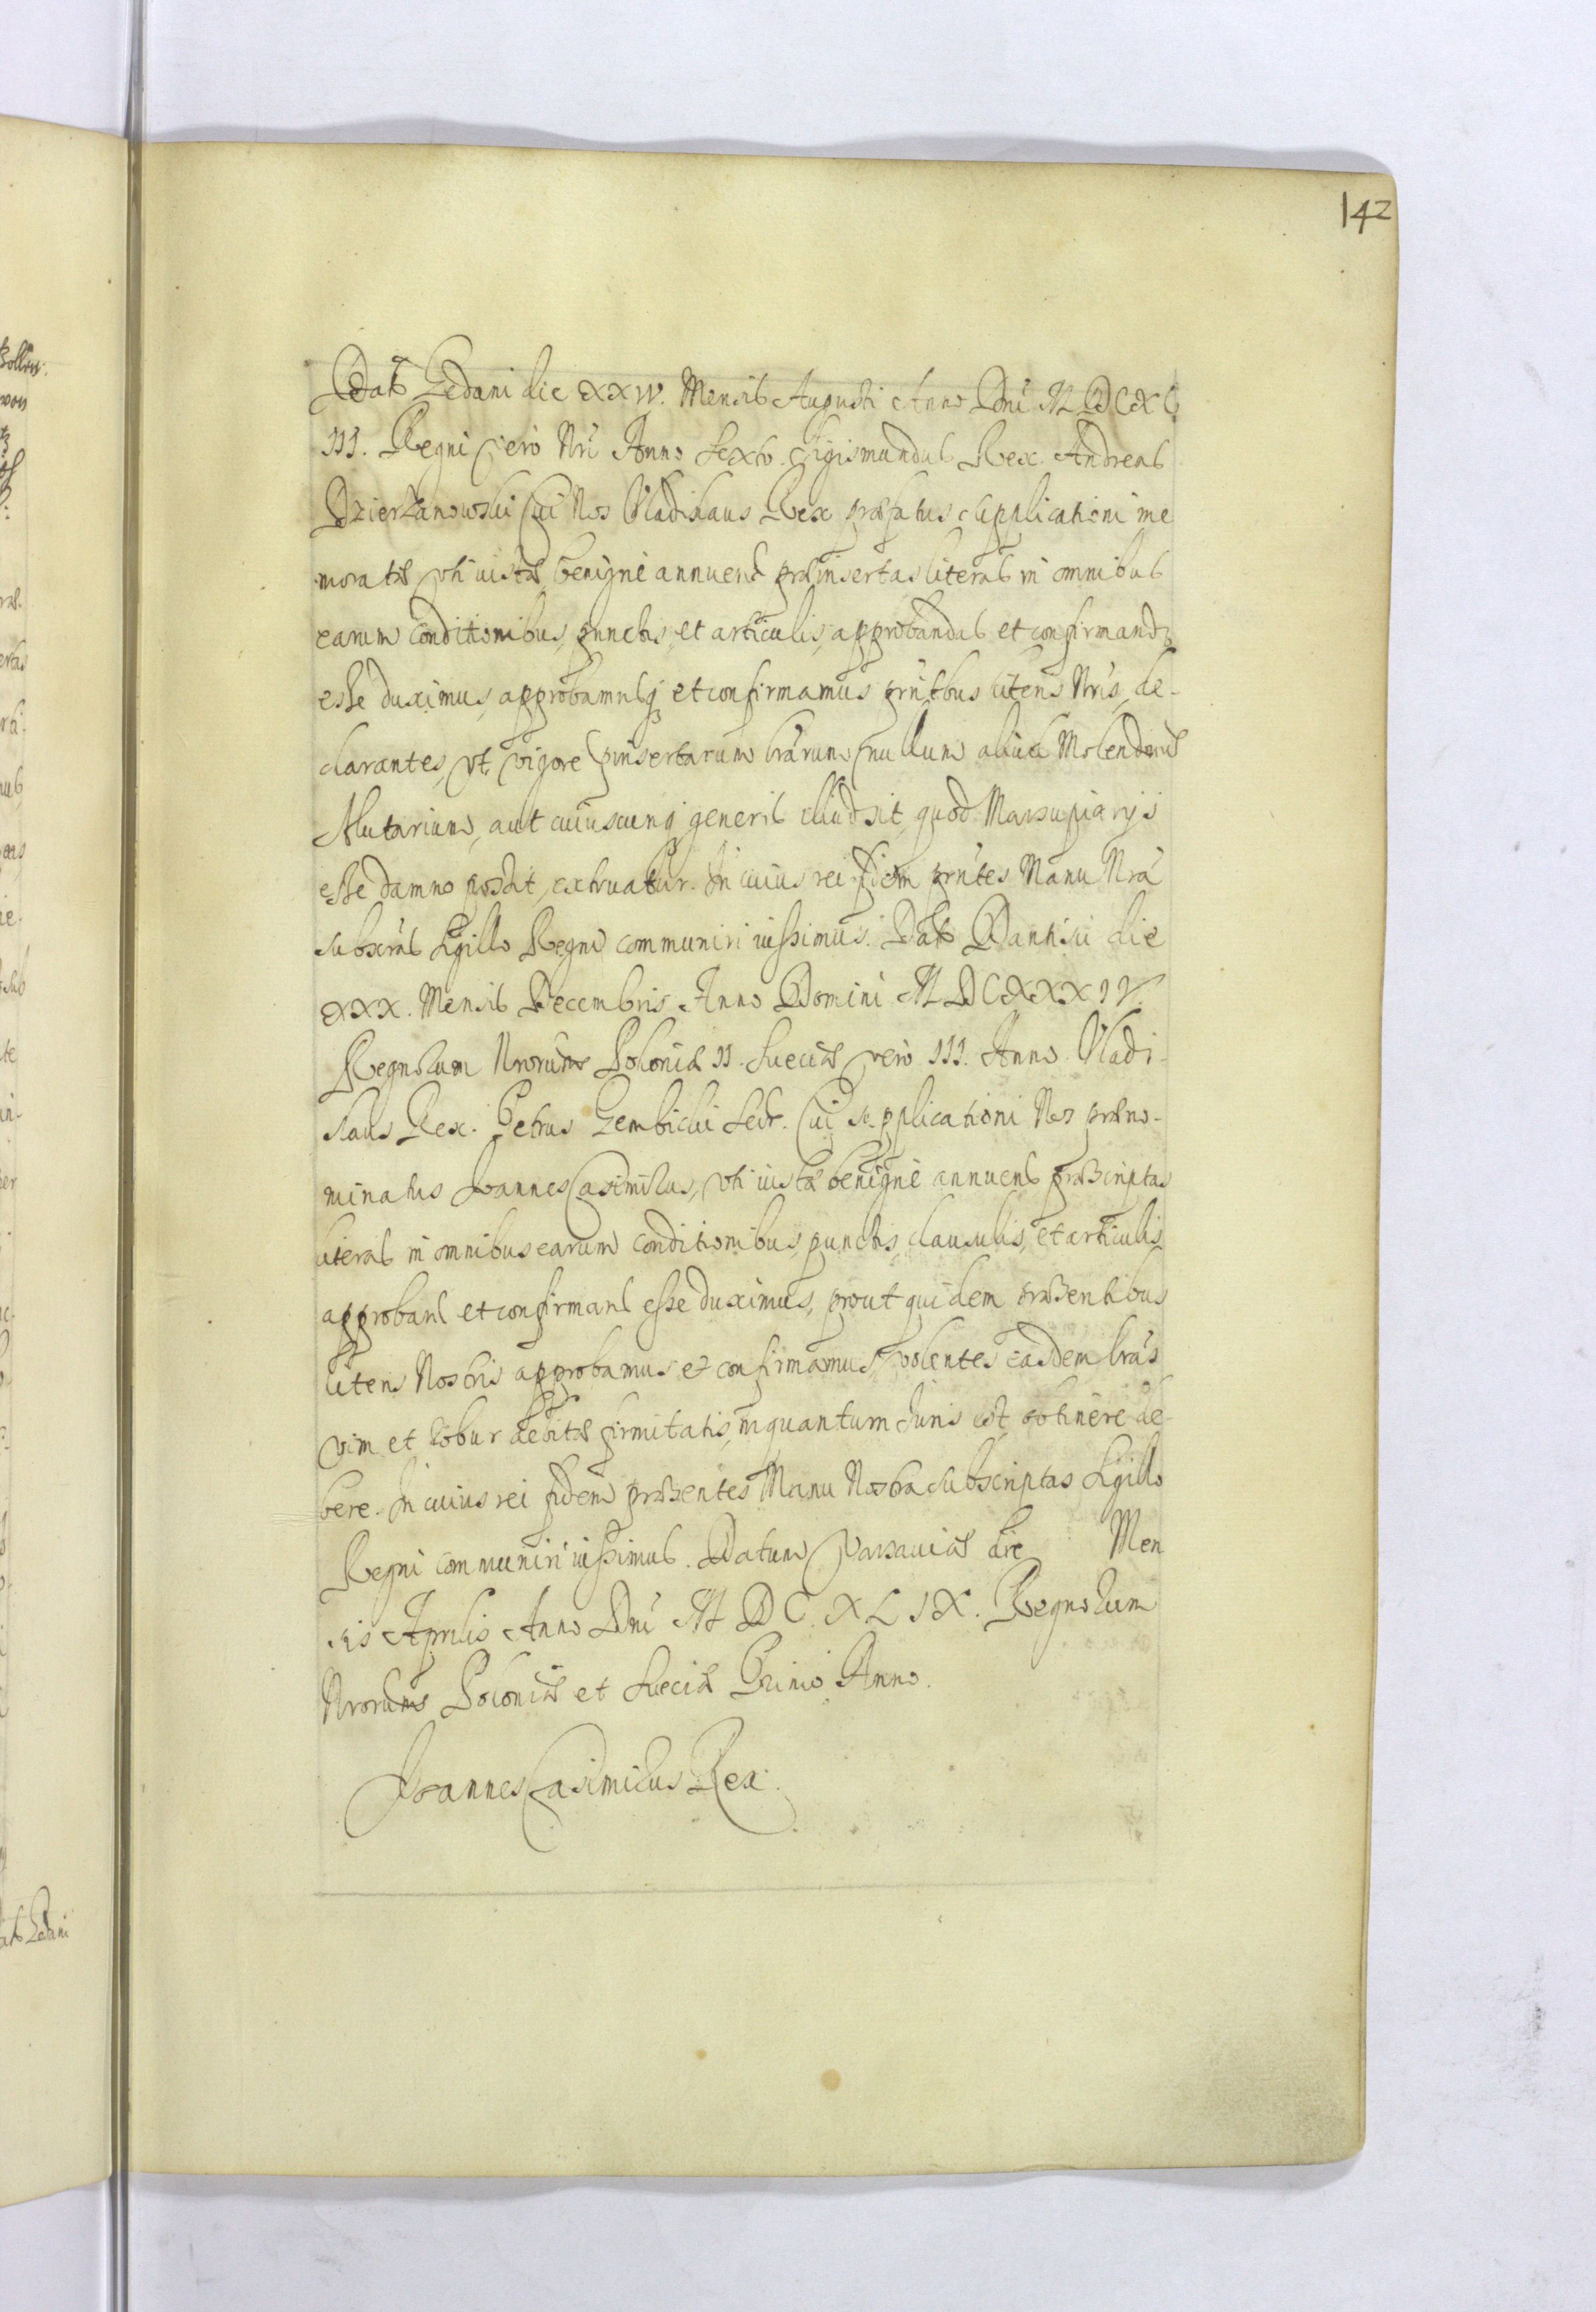 142
Dat Gedani die XXIV. Mensis Augusti Anno Dni M D C X C
III. Regni vero Nri Anno Sexto. Sigismundus Rex. Andreas
Dzierzanowski Cui Nos Vladislaus Rex præfatus supplicationi me
moratæ uti iustæ benigne annuens præinsertas literas in omnibus
earum conditionibus, punctis, et articulis, approbandas et confirmand
esse duximus, approbamusq et confirmamus prntbus literis Nris, de-
clarantes, vt vigore pinsertarum lrarum nullum aliud Molendinũ
Alutarium, aut cuiuscunq generis illud sit, quod Marsupiarijs
esse damno possit, extruatur. In cuius rei fidem prntes Manu Nra
subscras Sigillo Regni communiri iussimus. Dat Dantisci die
XXX. Mensis Decembris Anno Domini M D C XXX I V.
Regnorum Nrorum Poloniæ II. Sueciæ vero III. Anno. Vladi-
slaus Rex. Petrus Gembicki Secr. Cui supplicationi Nos præno-
minatus Joannes Casimirus, uti iustæ benigne annuens præscriptas
literas in omnibus earum conditionibus, punctis, clausulis, et articulis
approbans et confirmans esse duximus, prout quidem præsentibus
literis Nostris approbamus et confirmamus, volentes easdem lras
vim et robur debitæ firmitatis, inquantum Juris est, obtinere de
bere. In cuius rei fidem præsentes Manu Nostra subscriptas Sigillo
Regni communiri iussimus. Datum Varsauiæ die Men
sis Aprilis Anno Dni M D C. X L I X. Regnorum
Nrorum Poloniæ et Sueciæ Primo Anno.
Joannes Casimirus Rex.